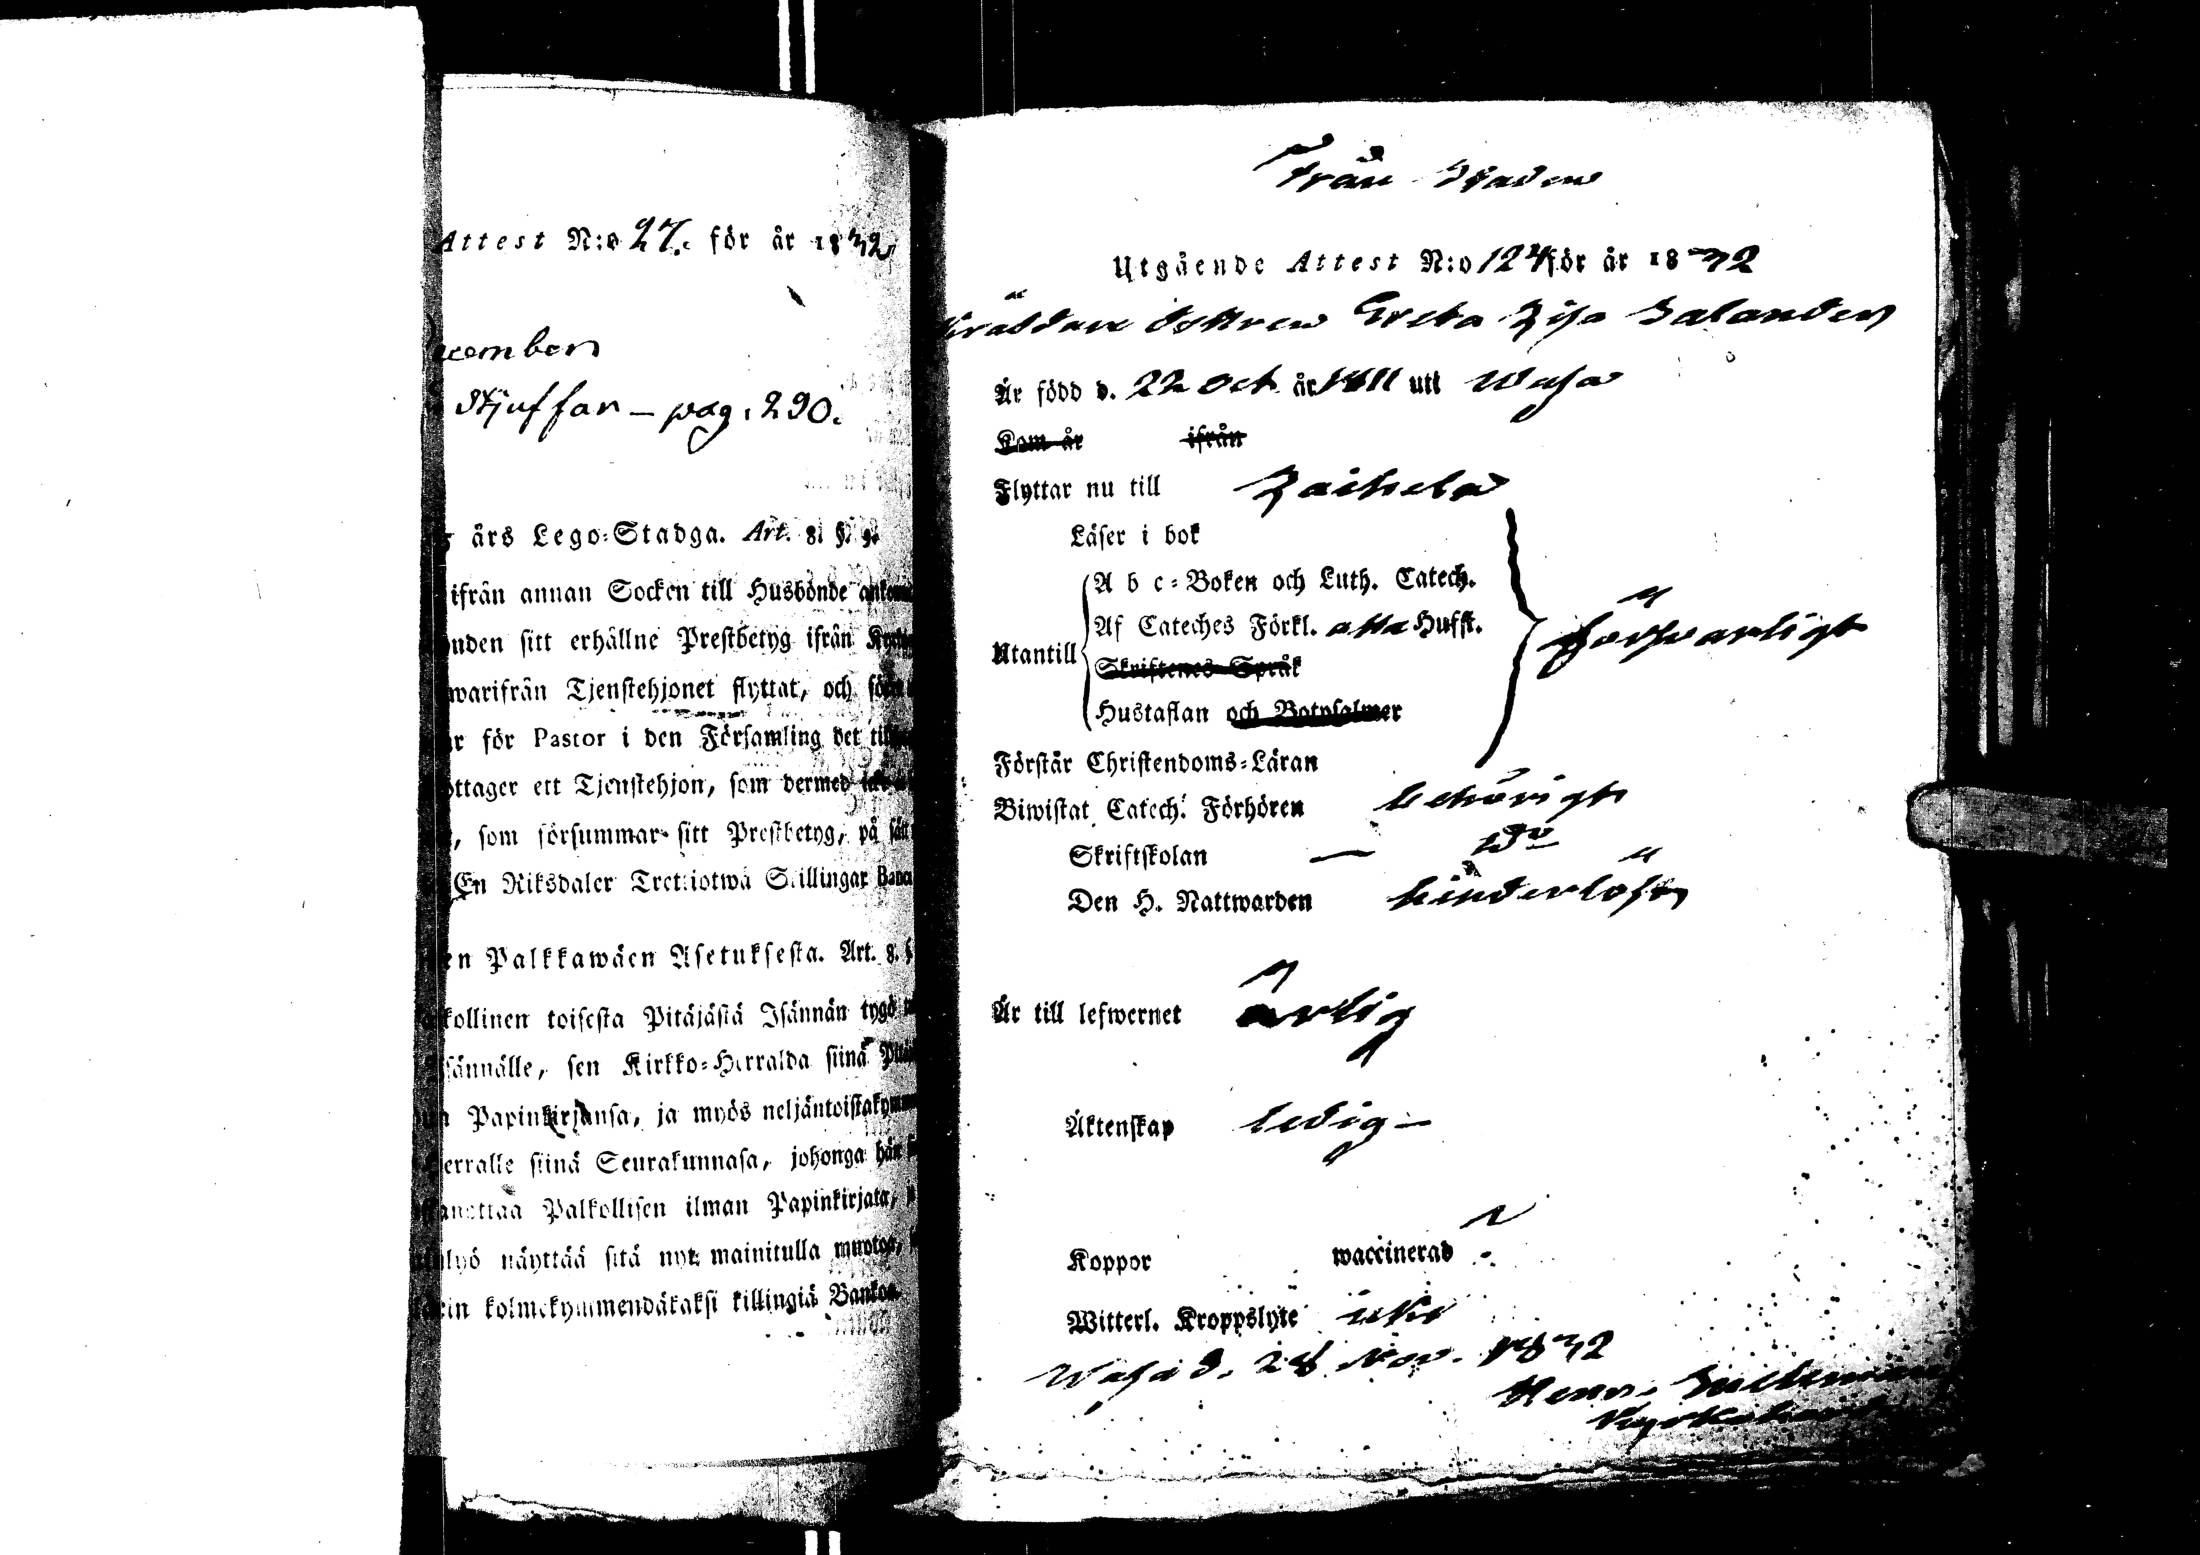 Attest N:o 27. för år 1832
December
Stjuffar – pag. 290.
års Lego-Stadga. Art. 8. §. 9.
ifrån annan Socken till Husbonde
sitt erhållne Prestbetyg ifrån
warifrån Tjenstehjonet flyttat, och
för Pastor i den Församling det
ottager ett Tjenstehjon, som dermed
, som försummar sitt Prestbetyg, på sätt
En Riksdaler Trettiotwå Skillingar Banco
en Palkkawäen Asetuksesta. Art. 8. §
kollinen toisesta Pitäjästä Isännän tygö
sännälle, sen Kirkko-Herralda siinä
Papinkirjansa, ja myös neljäntoistakymmen
erralle siinä Seurakunnasa, johonga hän
anottaa Palkollisen ilman Papinkirjata,
lyö näyttää sitä nyt mainitulla muotoa,
kolmekymmendäkaksi killingiä Bankos.
Från Staden
Utgående Attest N:o 124 för år 1832
Kräddare dottren Greta Lisa Salander
Är född d. 22 Oct. år 1811 uti Wasa
Kom år ifrån
Flyttar nu till Laihela
Läser i bok
A b c-Boken och Luth. Catech.
Af Cateches Förkl. alla Hufst.
Utantill
Skriftenes Språk
försvarligt
Hustaflan och Botpsalmer
Förstår Christendoms-Läran
Biwistat Catech. Förhören behörigt
Skriftskolan — do
Den H. Nattwarden hinderlös
Är till lefwernet ärlig
Äktenskap ledig –
Koppor waccinerad
Witterl. Kroppslyte icke
Wasa d. 28 Nov. 1832
Henr.
Kyrkoherde